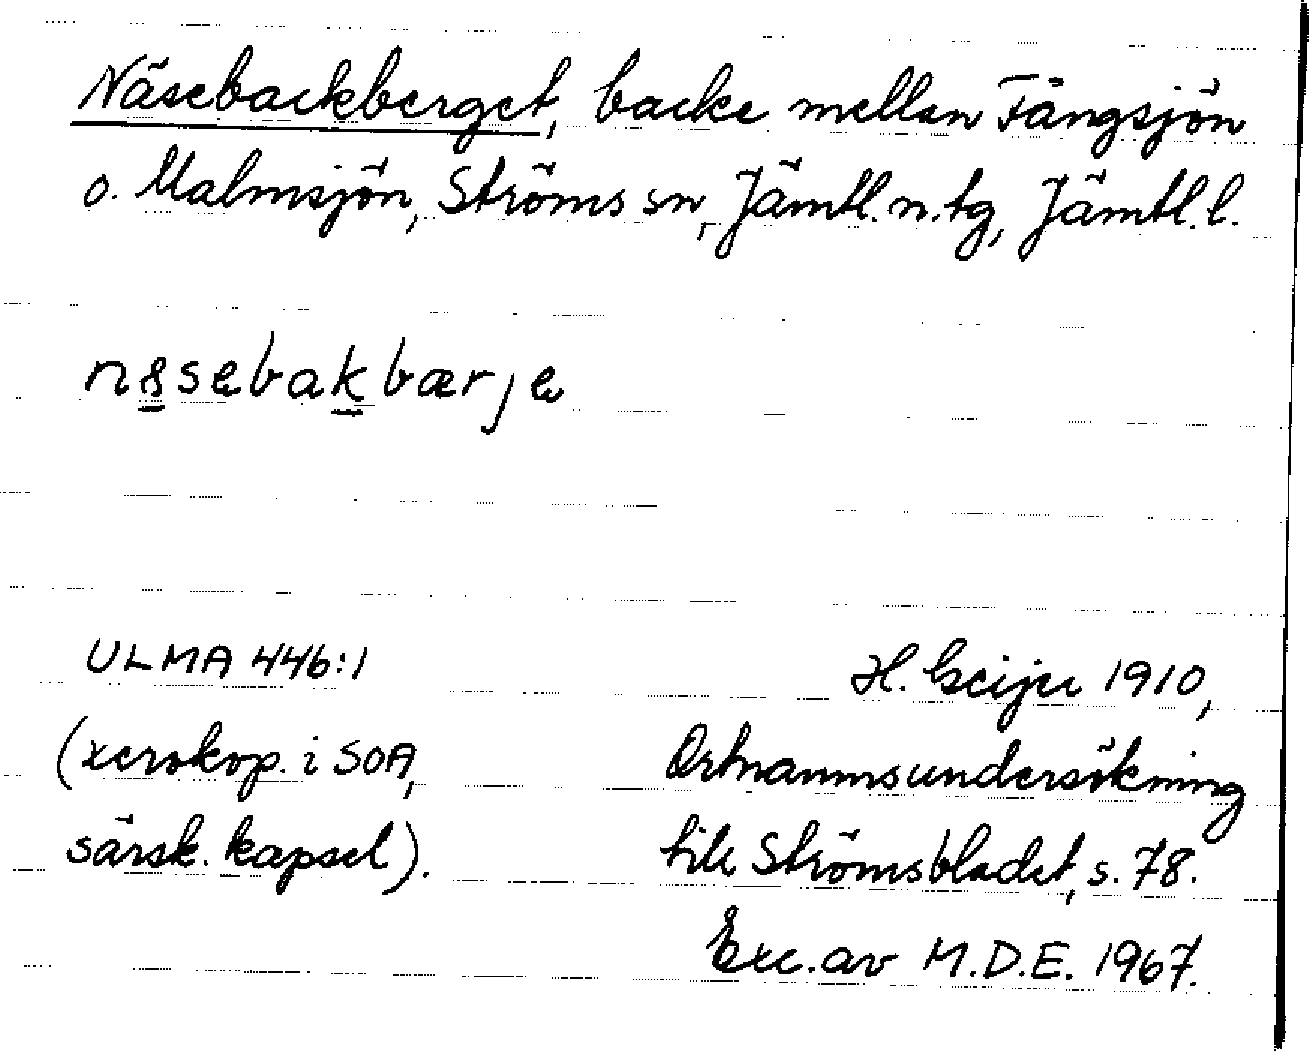 Näsebackberget, backe mellan Fångsjön
o. Malmsjön, Ströms sn, Jämtl. n. tg, Jämtl. l.
ULMA 446:1
(xerokop. i SOA,
särsk. kapsel).
H. Geijer 1910,
Ortnamnsundersökning
till Strömsbladet, s. 78.
Exc. av M.D.E. 1967.